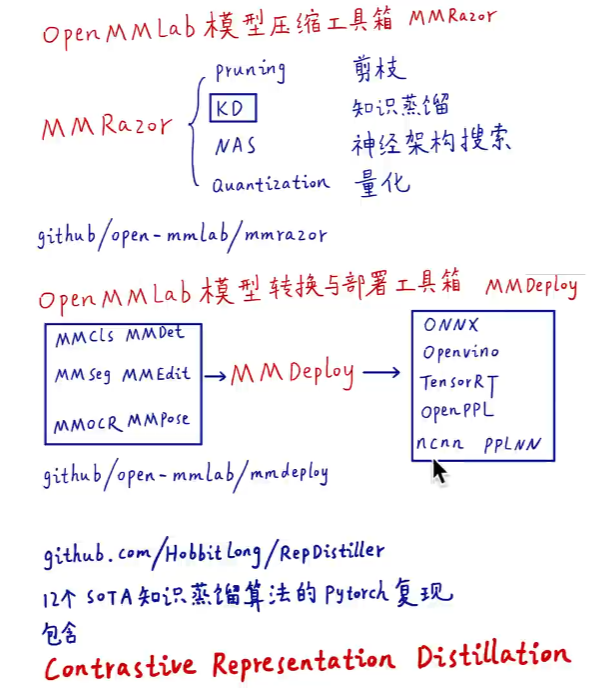 OpenMMLab 模型压缩工具箱 MMRazor
MMRazor
pruning 剪枝
KD 知识蒸馏
NAS 神经架构搜索
Quantization 量化
github/open-mmlab/mmrazor
OpenMMLab 模型转换与部署工具箱 MMDeploy
MMCls MMDet
MMSeg MMEdit
MMOCR MMPose
MMDeploy
ONNX
Openvino
TensorRT
OpenPPL
ncnn PPLNN
github/open-mmlab/mmdeploy
github.com/HobbitLong/RepDistiller
12个 SOTA知识蒸馏算法的 Pytorch 复现
包含
Contrastive Representation Distillation